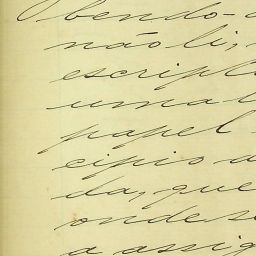 bendo-o
não li,
escripto
uma l
papel
cipio a
da, que
onde se
a assig